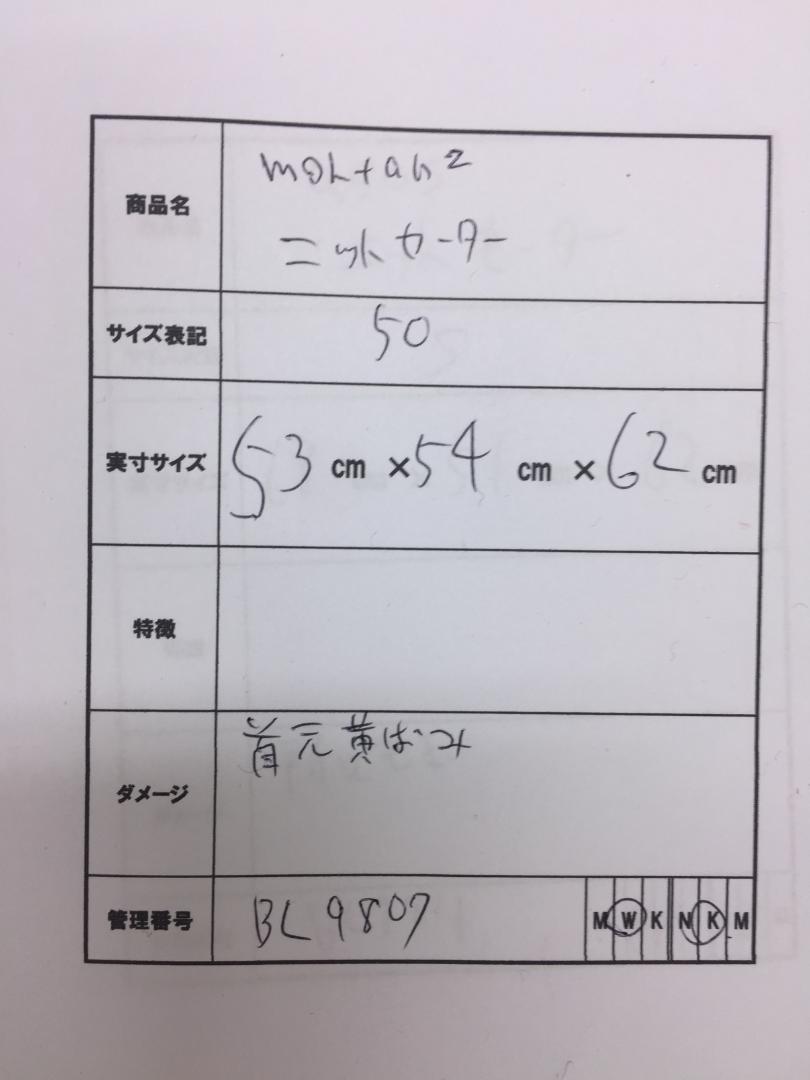 商品名
montanz
ニットセーター
サイズ表記
50
実寸サイズ
53 cm ×54 cm ×62 cm
特徴
ダメージ
首元黄ばみ
管理番号
BL9807
M W K N K M